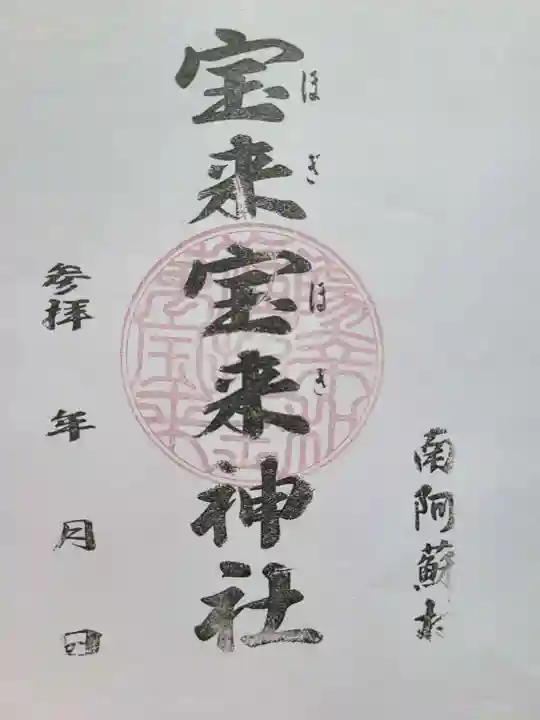 南阿蘇村
宝来宝来神社
ほぎ
ほき
参拝 年 月 日